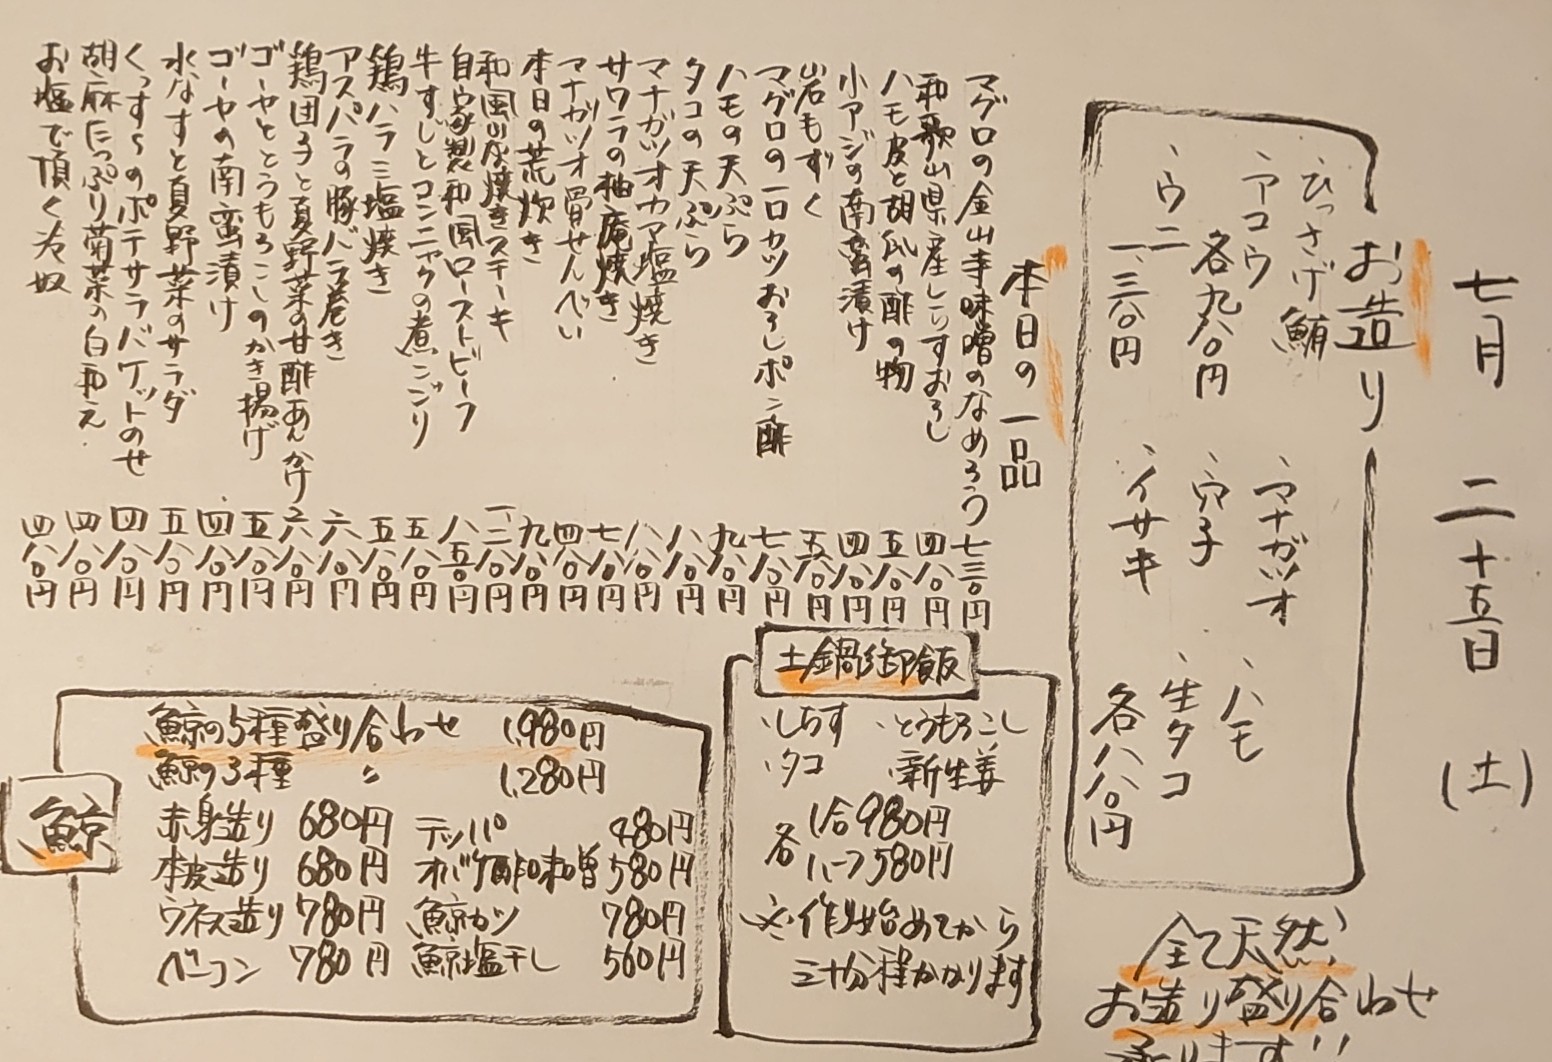 七月 二十五日 (土)
お造り
、ひっさげ鮪
、アコウ
各九八〇円
、ウニ
一、三八〇円
、マナガツオ
、穴子
、イサキ
、ハモ
、生タコ
各八八〇円
全て天然!
お造り盛り合わせ
承ります!!
本日の一品
マグロの金山寺味噌のなめろう 七三〇円
和歌山県産しらすおろし 四八〇円
ハモ皮と胡瓜の酢の物 五八〇円
小アジの南蛮漬け 四八〇円
岩もずく 五八〇円
マグロの一口カツおろしポン酢 七八〇円
ハモの天ぷら 九八〇円
タコの天ぷら 八八〇円
マナガツオカマ塩焼き 八八〇円
サワラの柚庵焼き 七八〇円
マナガツオ骨せんべい 四八〇円
本日の荒炊き 九八〇円
和風炭焼きステーキ 一、二八〇円
自家製和風ローストビーフ 八五〇円
牛すじとコンニャクの煮こごり 五八〇円
鶏ハラミ塩焼き 五八〇円
アスパラの豚バラ巻き 六八〇円
鶏団子と夏野菜の甘酢あんかけ 六八〇円
ゴーヤととうもろこしのかき揚げ 五八〇円
ゴーヤの南蛮漬け 四八〇円
水なすと夏野菜のサラダ 五八〇円
くっすらのポテサラバケットのせ 四八〇円
胡麻たっぷり菊菜の白和え. 四八〇円
お塩で頂く冷奴 四八〇円
土鍋御飯
・しらす ・とうもろこし
・タコ ・新生姜
各 1合980円
ハーフ580円
※作り始めてから
三十分程かかります
鯨
鯨の5種盛り合わせ 1,980円
鯨の3種 〃 1,280円
赤身造り 680円
本皮造り 680円
ウネス造り 780円
ベーコン 780円
テッパ 480円
オバケ酢味噌 580円
鯨カツ 780円
鯨塩干し 560円